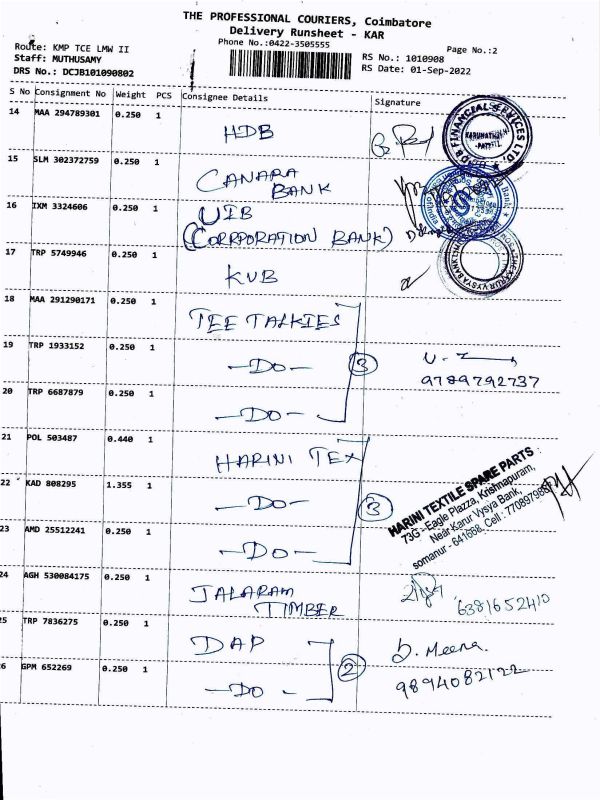 THE PROFESSIONAL COURIERS, Coimbatore
Delivery Runsheet - KAR
Phone No.:0422-3505555
Page No.:2
Route: KMP TCE LMW II
Staff: MUTHUSAMY
DRS No.: DCJB101090802
RS No.: 1010908
RS Date: 01-Sep-2022
S No Consignment No Weight PCS Consignee Details Signature
14 MAA 294789301 0.250 1 HDB
HDB FINANCIAL SERVICES LTD.
15 SLM 302372759 0.250 1 CANARA
BANK
16 IXM 3324606 0.250 1 UIB
(CORRPORATION BANK)
17 TRP 5749946 0.250 1 KVB
18 MAA 291290171 0.250 1 TEE TALKIES
19 TRP 1933152 0.250 1 —DO— 3
9789792737
20 TRP 6687879 0.250 1 —DO—
21 POL 503487 0.440 1 HARINI TEX
22 KAD 808295 1.355 1 —DO— 3
HARINI TEXTILE SPARE PARTS
73G - Eagle Plazza, Krishnapuram,
Near Karur Vysya Bank,
somanur - 641668, Cell : 770897986
23 AMD 25512241 0.250 1 —DO—
24 AGH 530084175 0.250 1 JALARAM
TIMBER
6381652410
25 TRP 7836275 0.250 1 DAP
D. Meena.
26 GPM 652269 0.250 1 —DO— 2
9894082122